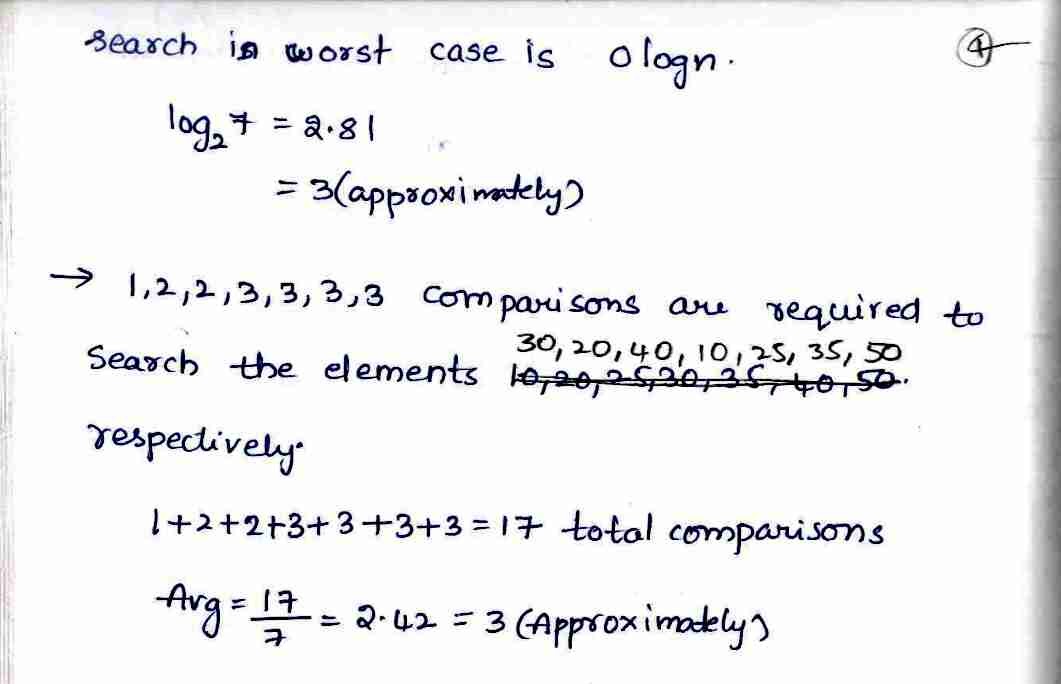 Search in worst case is O logn. 4
log₂ 7 = 2.81
= 3(approximately)
→ 1,2,2,3,3,3,3 comparisons are required to
30, 20, 40, 10, 25, 35, 50
Search the elements 10,20,25,30,35,40,50.
respectively.
1+2+2+3+3+3+3 = 17 total comparisons
Avg = 17/7 = 2.42 = 3 (Approximately)